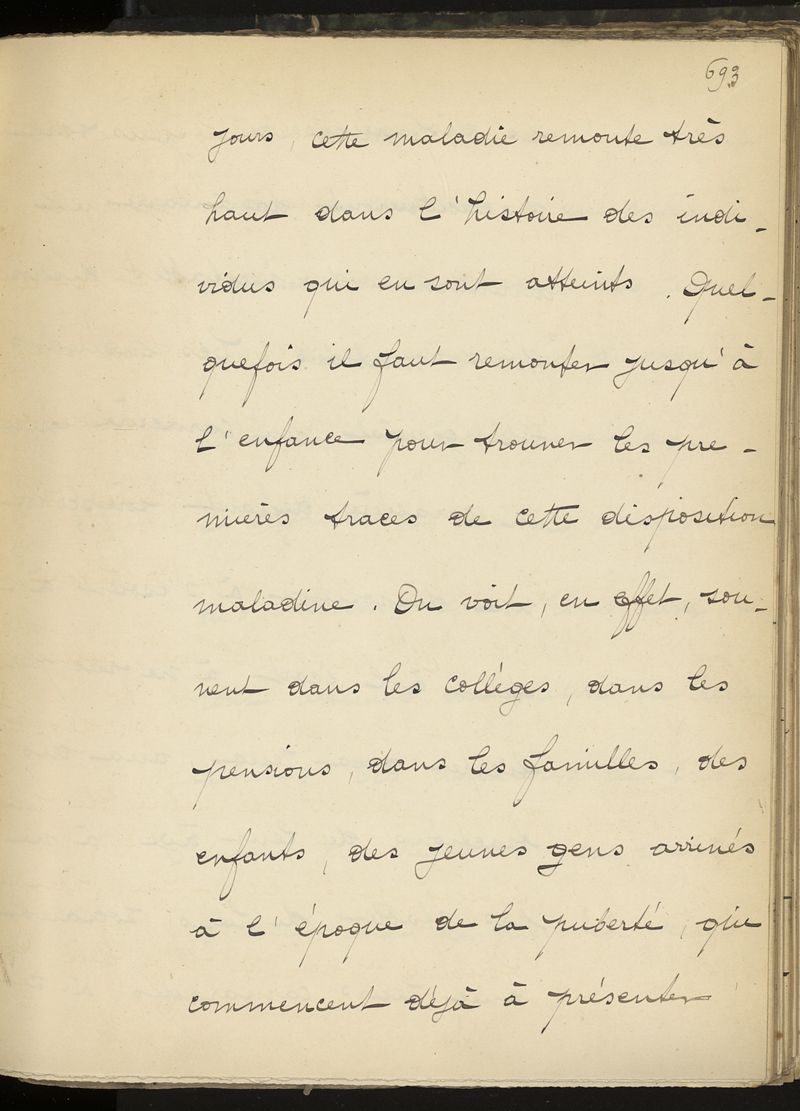 693
jours, cette maladie remonte très
haut dans l'histoire des indi-
vidus qui en sont atteints. Quel-
quefois il faut remonter jusqu'à
l'enfance pour trouver les pre-
mières traces de cette disposition
maladive. On voit, en effet, sou-
vent dans les collèges, dans les
pensions, dans les familles, des
enfants, des jeunes gens arrivés
à l'époque de la puberté, qui
commencent déjà à présenter